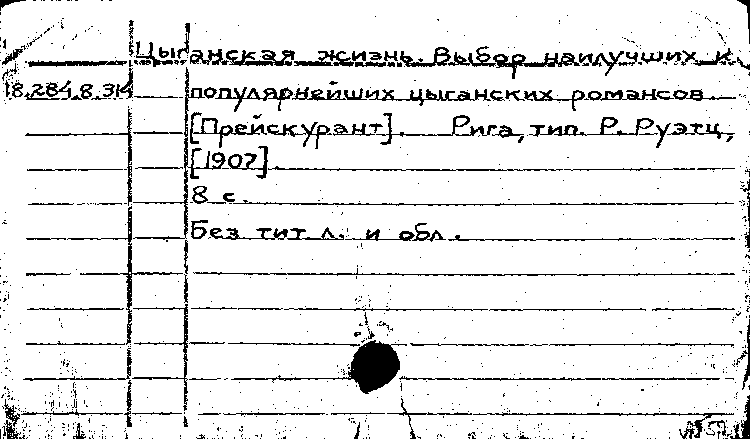 Цыганская жизнь. Выбор наилучших и
18.284.8.314 популярнейших цыганских романсов.
[Прейскурант]. Рига, тип. Р. Руэтц,
[1907].
8 с.
Без тит л. и обл.